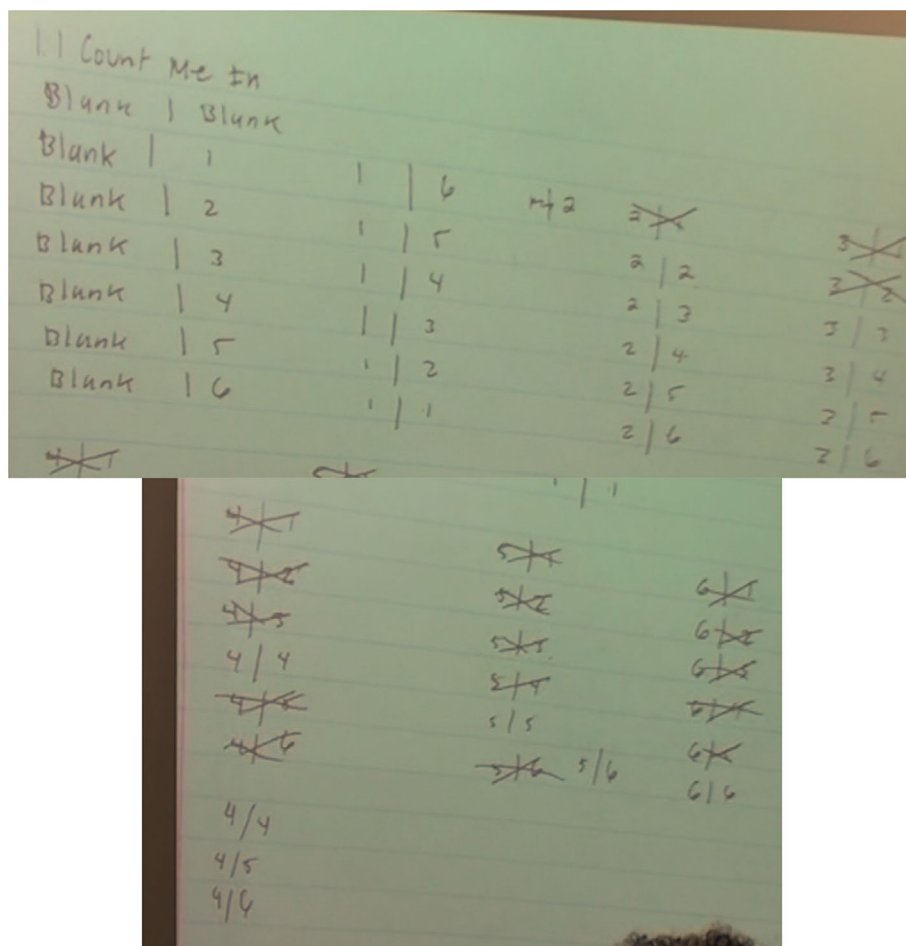 1.1 Count Me In
Blank | Blank
Blank | 1
Blank | 2
Blank | 3
Blank | 4
Blank | 5
Blank | 6
1 | 6
1 | 5
1 | 4
1 | 3
1 | 2
1 | 1
2
2 | 2
2 | 3
2 | 4
2 | 5
2 | 6
3
3 2
3 | 3
3 | 4
3 | 5
3 | 6
1 | 1
4 | 1
4 | 2
4 | 3
4 | 4
4 | 5
4 | 6
4 / 4
4 / 5
4 / 6
5 | 1
5 | 2
5 | 3
5 | 4
5 | 5
5 | 6 5/6
6 | 1
6 | 2
6 | 3
6 | 4
6
6 | 6